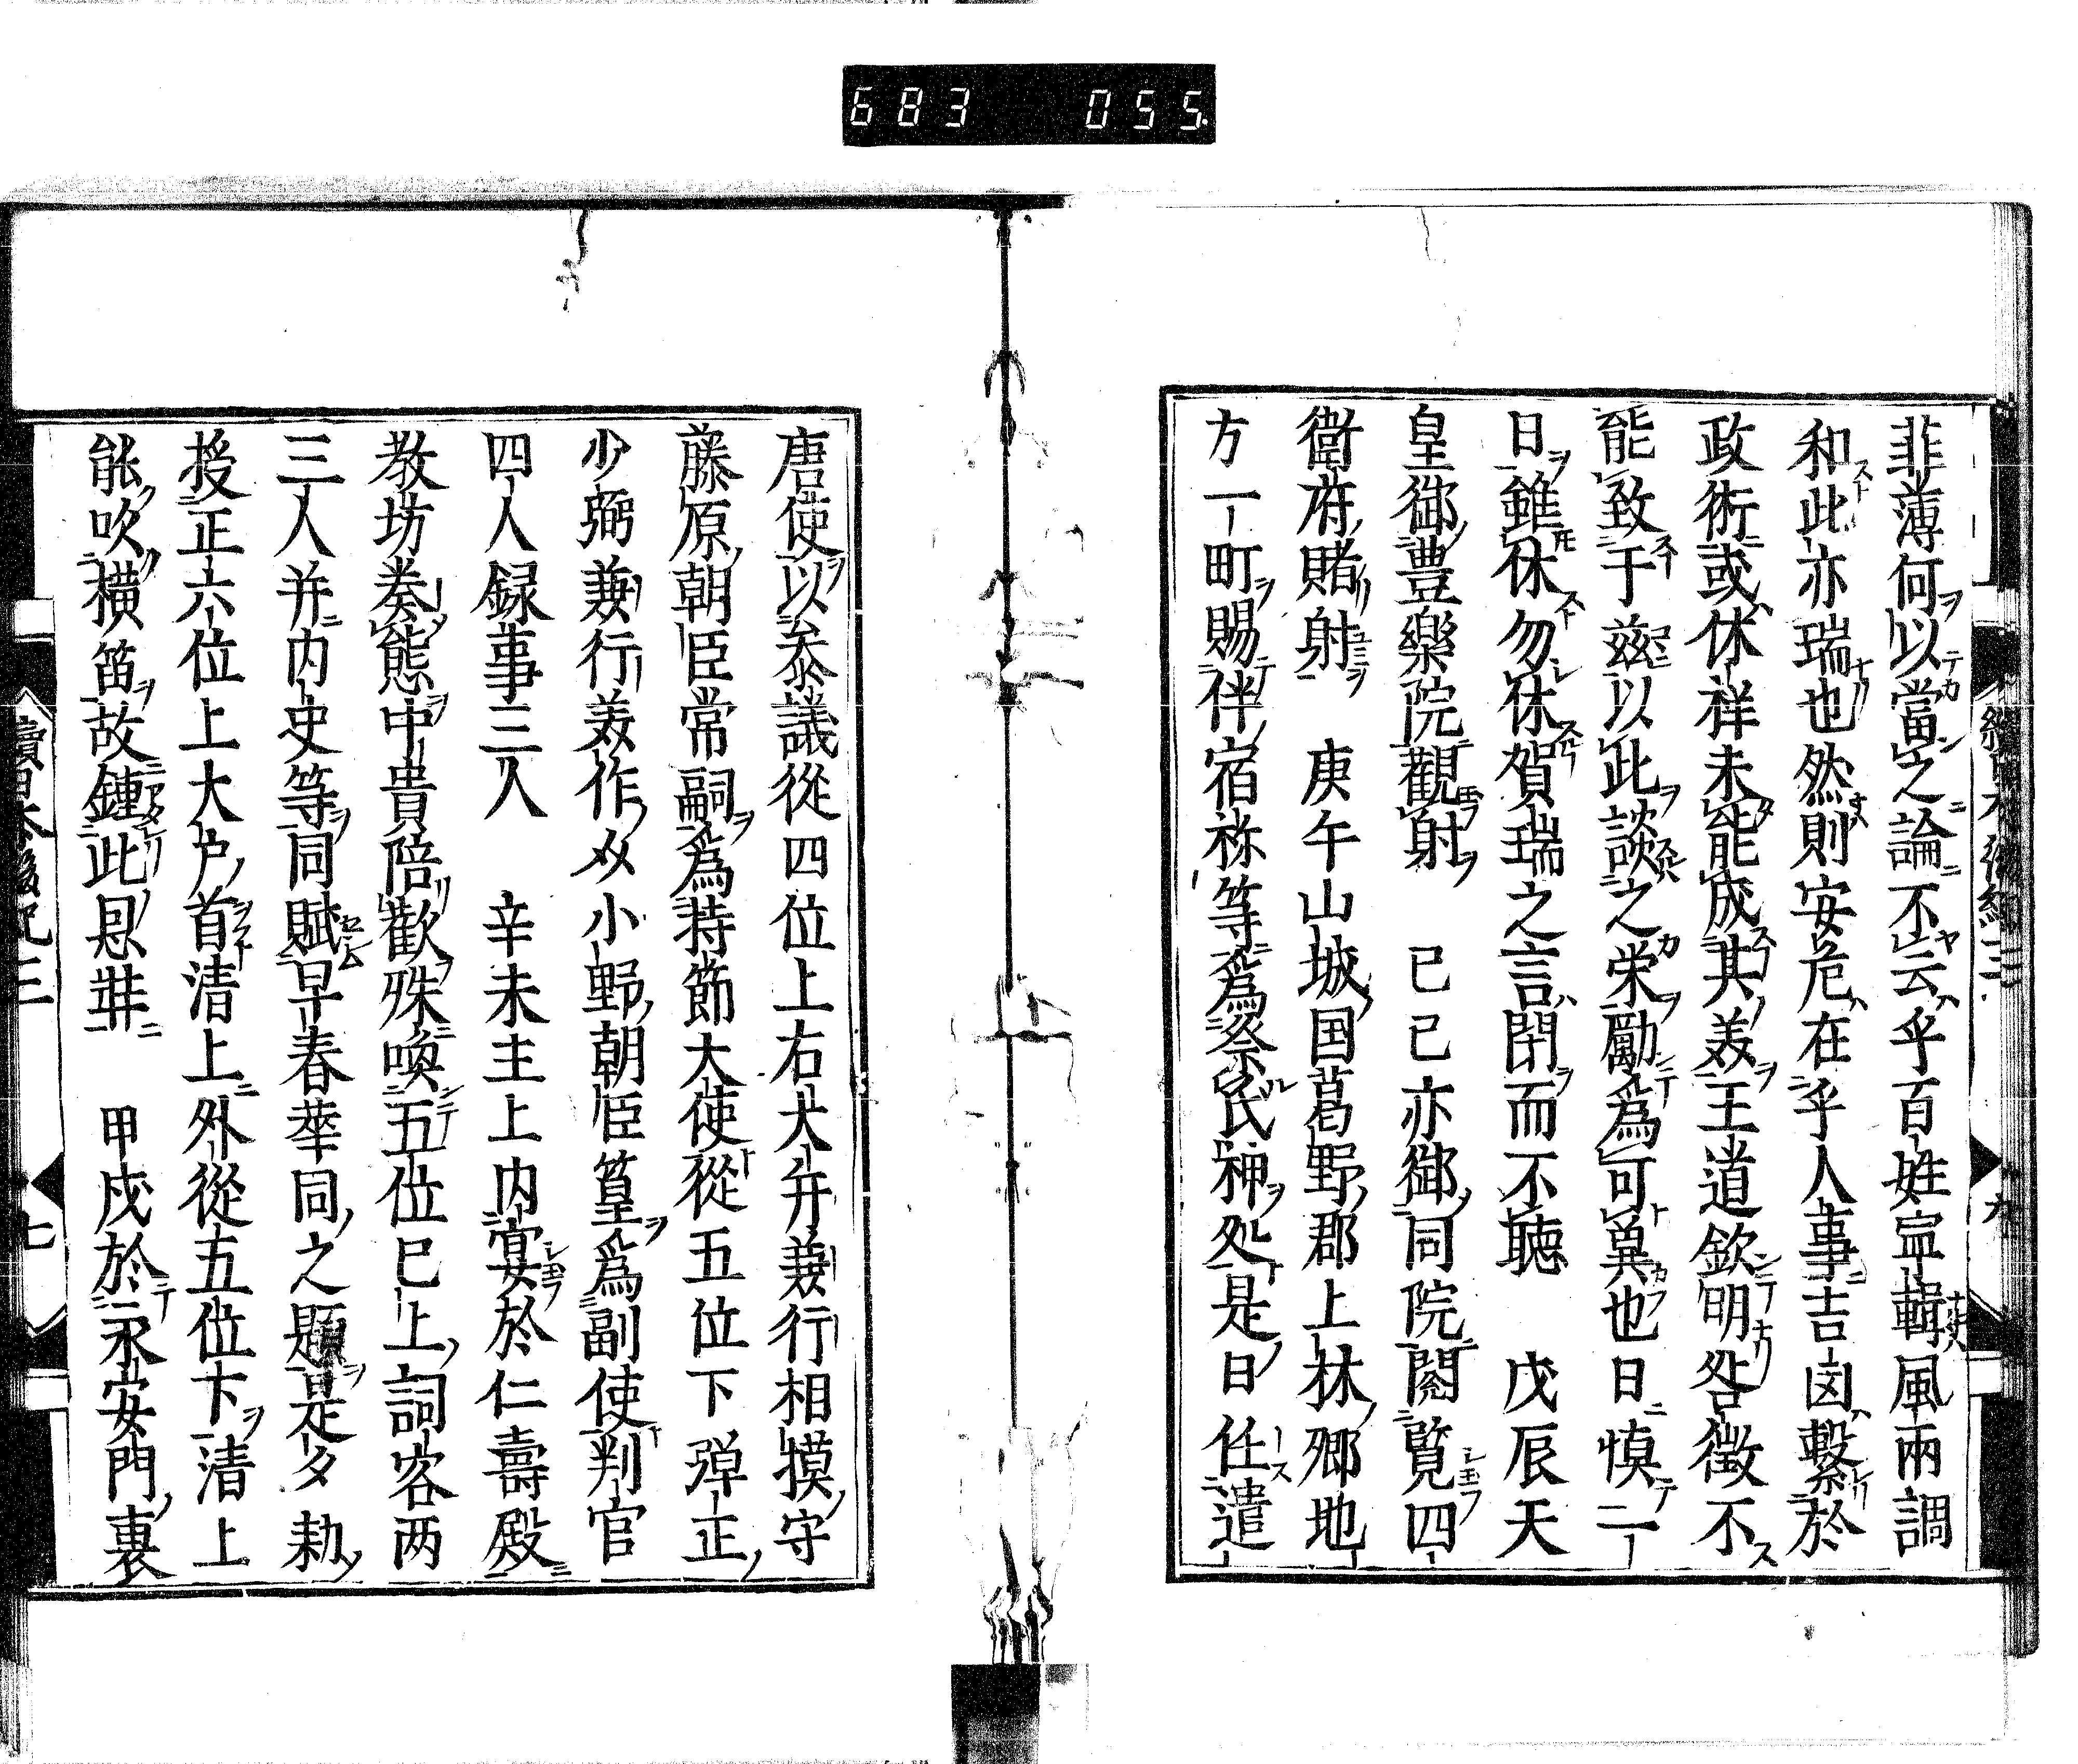 683 055
菲薄何以當之論不云乎百姓寍輯風雨調
和此亦瑞也然則安危在乎人事吉凶繫於
政術或休祥未能成其美王道欽明咎徵不
能致于兹以此談之栄勵為可冀也日慎一
日雖休勿休賀瑞之言閇而不聴　戊辰天
皇御豊樂院觀射　己巳亦御同院閲覧四
衛府賭射　庚午山城国葛野郡上林郷地
方一町賜伴宿祢等為祭氏神処是日任遣
唐使以叅議從四位上右大弁兼行相摸守
藤原朝臣常嗣為持節大使從五位下弾正
少弼兼行美作介小野朝臣篁為副使判官
四人録事三人　辛未主上内宴於仁壽殿
教坊奏態中貴陪歡殊喚五位已上詞客两
三人并内史等同賦早春華同之題是夕勅
授正六位上大戸首清上外從五位下清上
能吹横笛故鍾此恩奨　甲戌於永安門裏
續日本後紀三
七